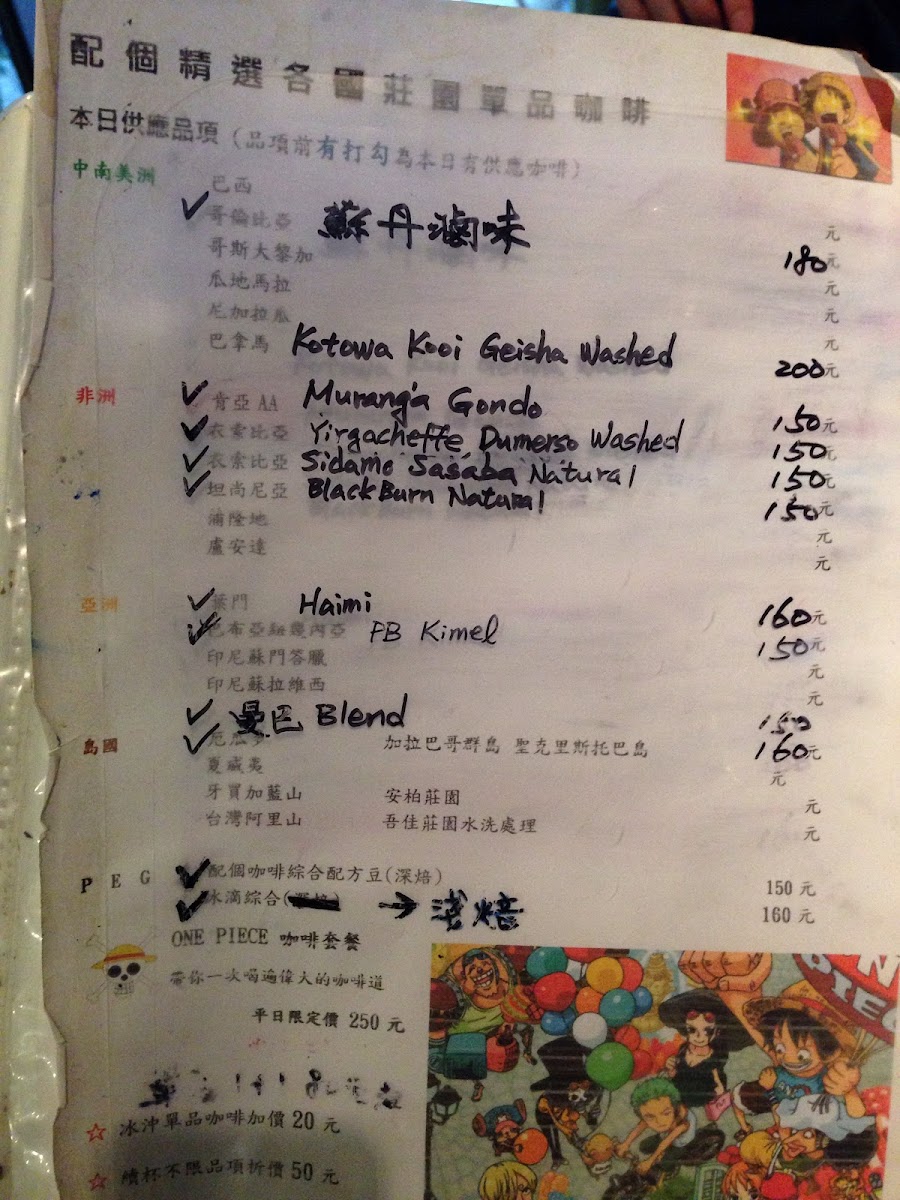 配個精選各國莊園單品咖啡
本日供應品項(品項前有打勾為本日有供應咖啡)
中南美洲 巴西 元
✓ 哥倫比亞 蘇丹滷味 180元
哥斯大黎加 元
瓜地馬拉 元
尼加拉瓜 元
巴拿馬 Kotowa Kooi Geisha Washed 200元
非洲 ✓ 肯亞AA Murang'a Gondo 150元
✓ 衣索比亞 Yirgacheffe Dumerso Washed 150元
✓ 衣索比亞 Sidamo Sasaba Natural 150元
✓ 坦尚尼亞 BlackBurn Natural 150元
蒲隆地 元
盧安達 元
亞洲 ✓ 葉門 Haimi 160元
✓ 巴布亞紐幾內亞 PB Kimel 150元
印尼蘇門答臘 元
印尼蘇拉維西 元
✓ 曼巴 Blend 150
島國 ✓ 厄瓜多 加拉巴哥群島 聖克里斯托巴島 160元
夏威夷 元
牙買加藍山 安柏莊園 元
台灣阿里山 吾佳莊園水洗處理 元
PEG ✓ 配個咖啡綜合配方豆(深焙) 150 元
✓ 冰滴綜合 → 淺焙 160 元
ONE PIECE 咖啡套餐
帶你一次喝遍偉大的咖啡道
平日限定價 250 元
☆ 冰沖單品咖啡加價 20 元
☆ 續杯不限品項折價 50 元